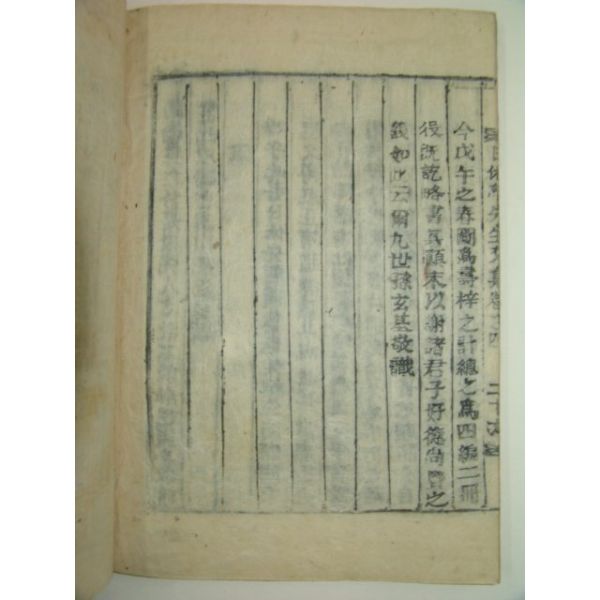 今戊午之春圖爲壽梓之計總之爲四編二冊
役旣訖略書其顚末以謝諸君子好德尙賢之
誼如此云爾九世孫玄基敬識
先生文集卷之四